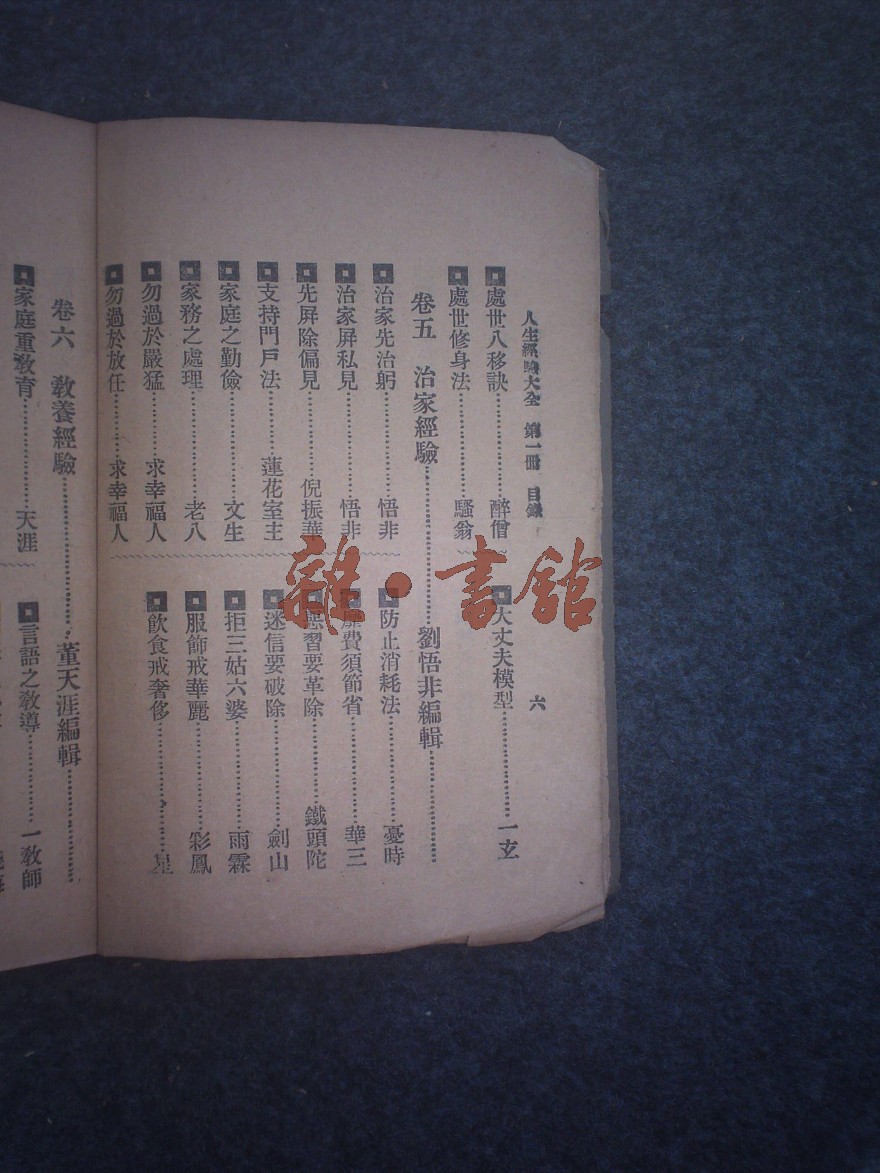 人生經驗大全　第一冊　目錄　六
處世八移訣　醉僧
大丈夫模型　一玄
處世修身法　騷翁
卷五　治家經驗　劉悟非編輯
治家先治躬　悟非
防止消耗法　憂時
治家屏私見　悟非
費須節省　華三
先屏除偏見　倪振華
習要革除　鐵頭陀
支持門戶法　蓮花室主
迷信要破除　劍山
家庭之勤儉　文生
拒三姑六婆　雨霖
家務之處理　老八
服飾戒華麗　彩鳳
勿過於嚴猛　求幸福人
飲食戒奢侈　星
勿過於放任　求幸福人
卷六　教養經驗　董天涯編輯
家庭重教育　天涯
言語之教導　一教師
雜·書館